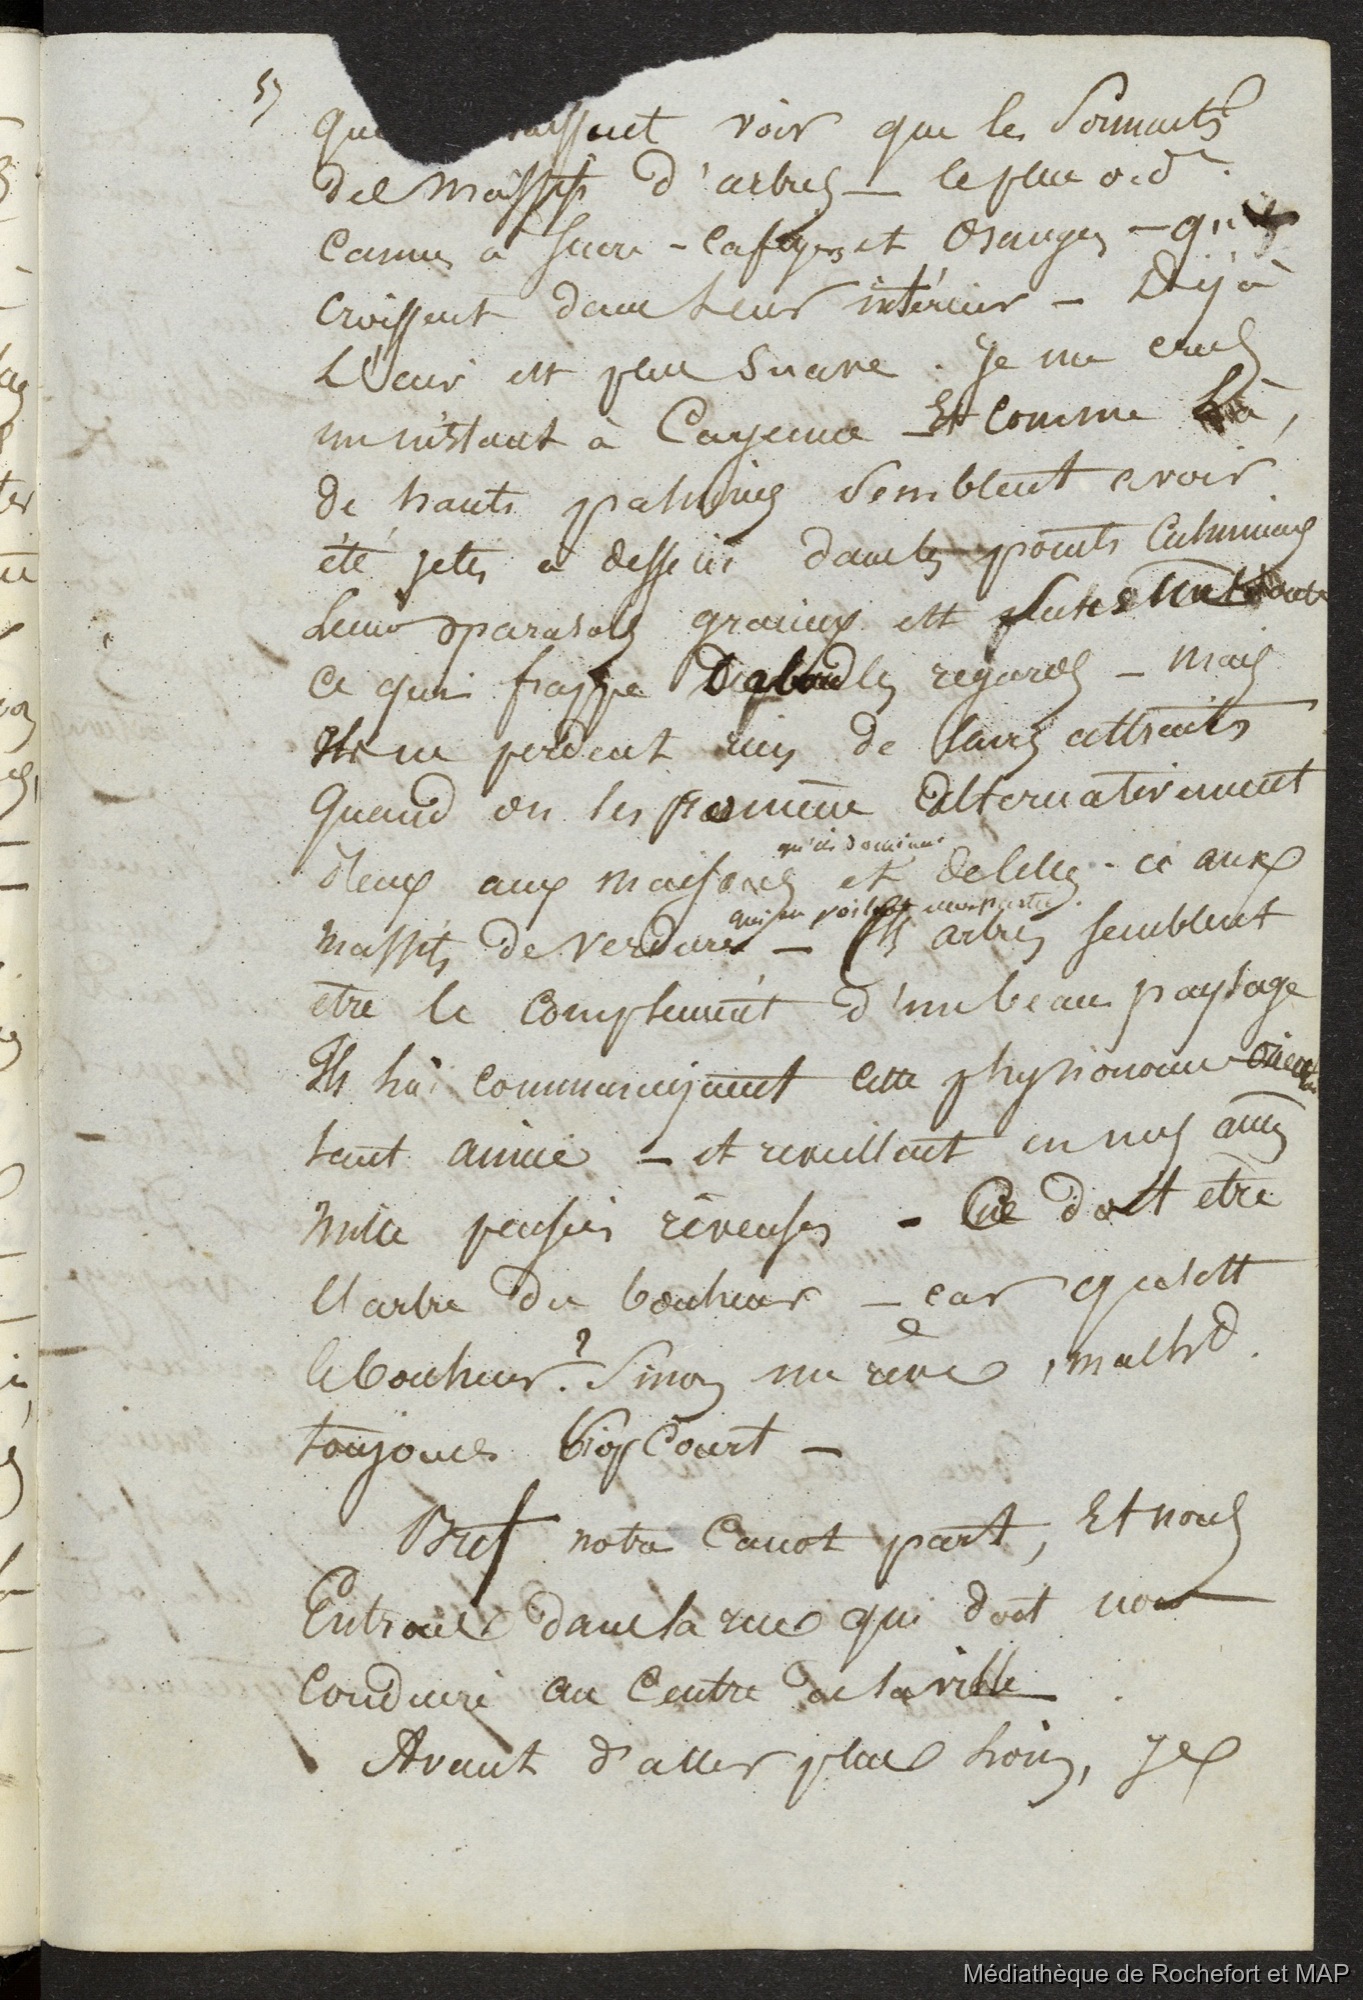 57
que laissent voir que les sommets
des massifs d'arbres — le plus ord.
cannes à sucre - cafeyers et oranges — qui
croissent dans leur intérieur — Déjà
L'air est plus suave. je me crus
un instant à Cayenne — Et comme Là,
de hauts palmiers semblent avoir
été jetés à dessein dans les points culminans
Leurs parasols gracieux est
ce qui frappe Dabord les regards — mais
Ils ne perdent rien de leurs attraits
Quand on les promène alternativement
qu'ils dominent
d'eux aux maisons et de celles-ci aux
qui en voilent une partie.
massifs de verdure — Ces arbres semblent
être le complement d'un beau paysage
Ils lui communiquent cette physionomie orientale
tant aimée — et reveillent en nos âmes
mille pensées rêveuses — Ce doit être
L'arbre du bonheur — car qu'est
le bonheur? Sinon un rêve, malh.
toujours trop Court —
Bref notre Canot part, Et nous
Entrons dans la rue qui doit nous
Conduire au Centre de la ville
Avant d'aller plus loin, je
Médiathèque de Rochefort et MAP